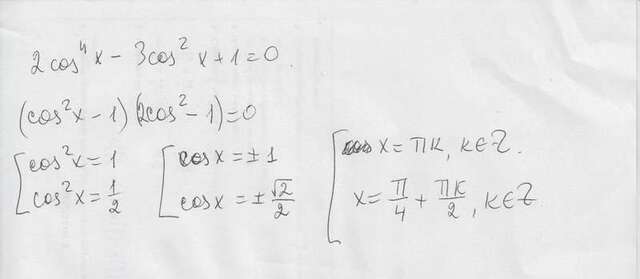 2cos⁴x − 3cos²x + 1 = 0.
(cos²x − 1)(2cos² − 1) = 0
[cos²x = 1
cos²x = 1/2
[cosx = ±1
cosx = ±√2/2
[x = πk, k∈Z.
x = π/4 + πk/2, k∈Z